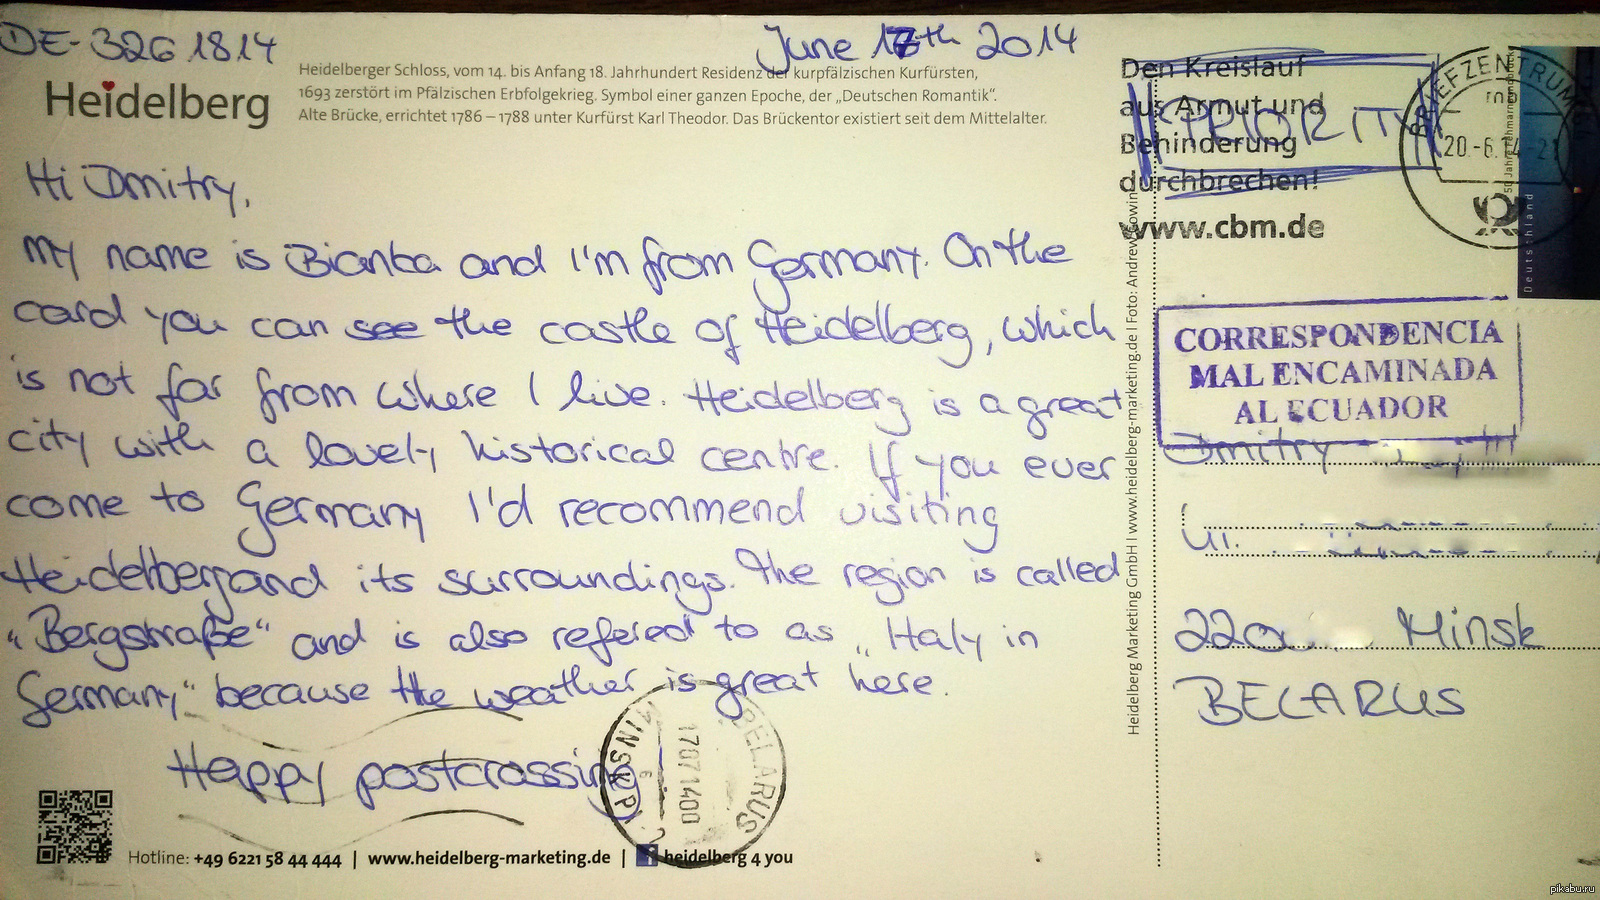 DE-3261814
June 17th 2014
Heidelberg
Heidelberger Schloss, vom 14. bis Anfang 18. Jahrhundert Residenz der kurpfälzischen Kurfürsten,
1693 zerstört im Pfälzischen Erbfolgekrieg. Symbol einer ganzen Epoche, der „Deutschen Romantik“.
Alte Brücke, errichtet 1786 – 1788 unter Kurfürst Karl Theodor. Das Brückentor existiert seit dem Mittelalter.
Hi Dmitry,
My name is Bianka and I'm from Germany. On the
card you can see the castle of Heidelberg, which
is not far from where I live. Heidelberg is a great
city with a lovely historical centre. If you ever
come to Germany I'd recommend visiting
Heidelberg and its surroundings. The region is called
„Bergstraße“ and is also refered to as „Italy in
Germany“ because the weather is great here.
Happy postcrossing
MINSK
BELARUS
17071400
Hotline: +49 6221 58 44 444 | www.heidelberg-marketing.de | f heidelberg 4 you
Heidelberg Marketing GmbH I www.heidelberg-marketing.de I Foto: Andrew Cowin
Den Kreislauf
aus Armut und
Behinderung
durchbrechen!
www.cbm.de
PRIORITY
BRIEFZENTRUM
20.-6.14-21
Deutschland
CORRESPONDENCIA
MAL ENCAMINADA
AL ECUADOR
Dmitry
Ul.
220 Minsk
BELARUS
pikabu.ru